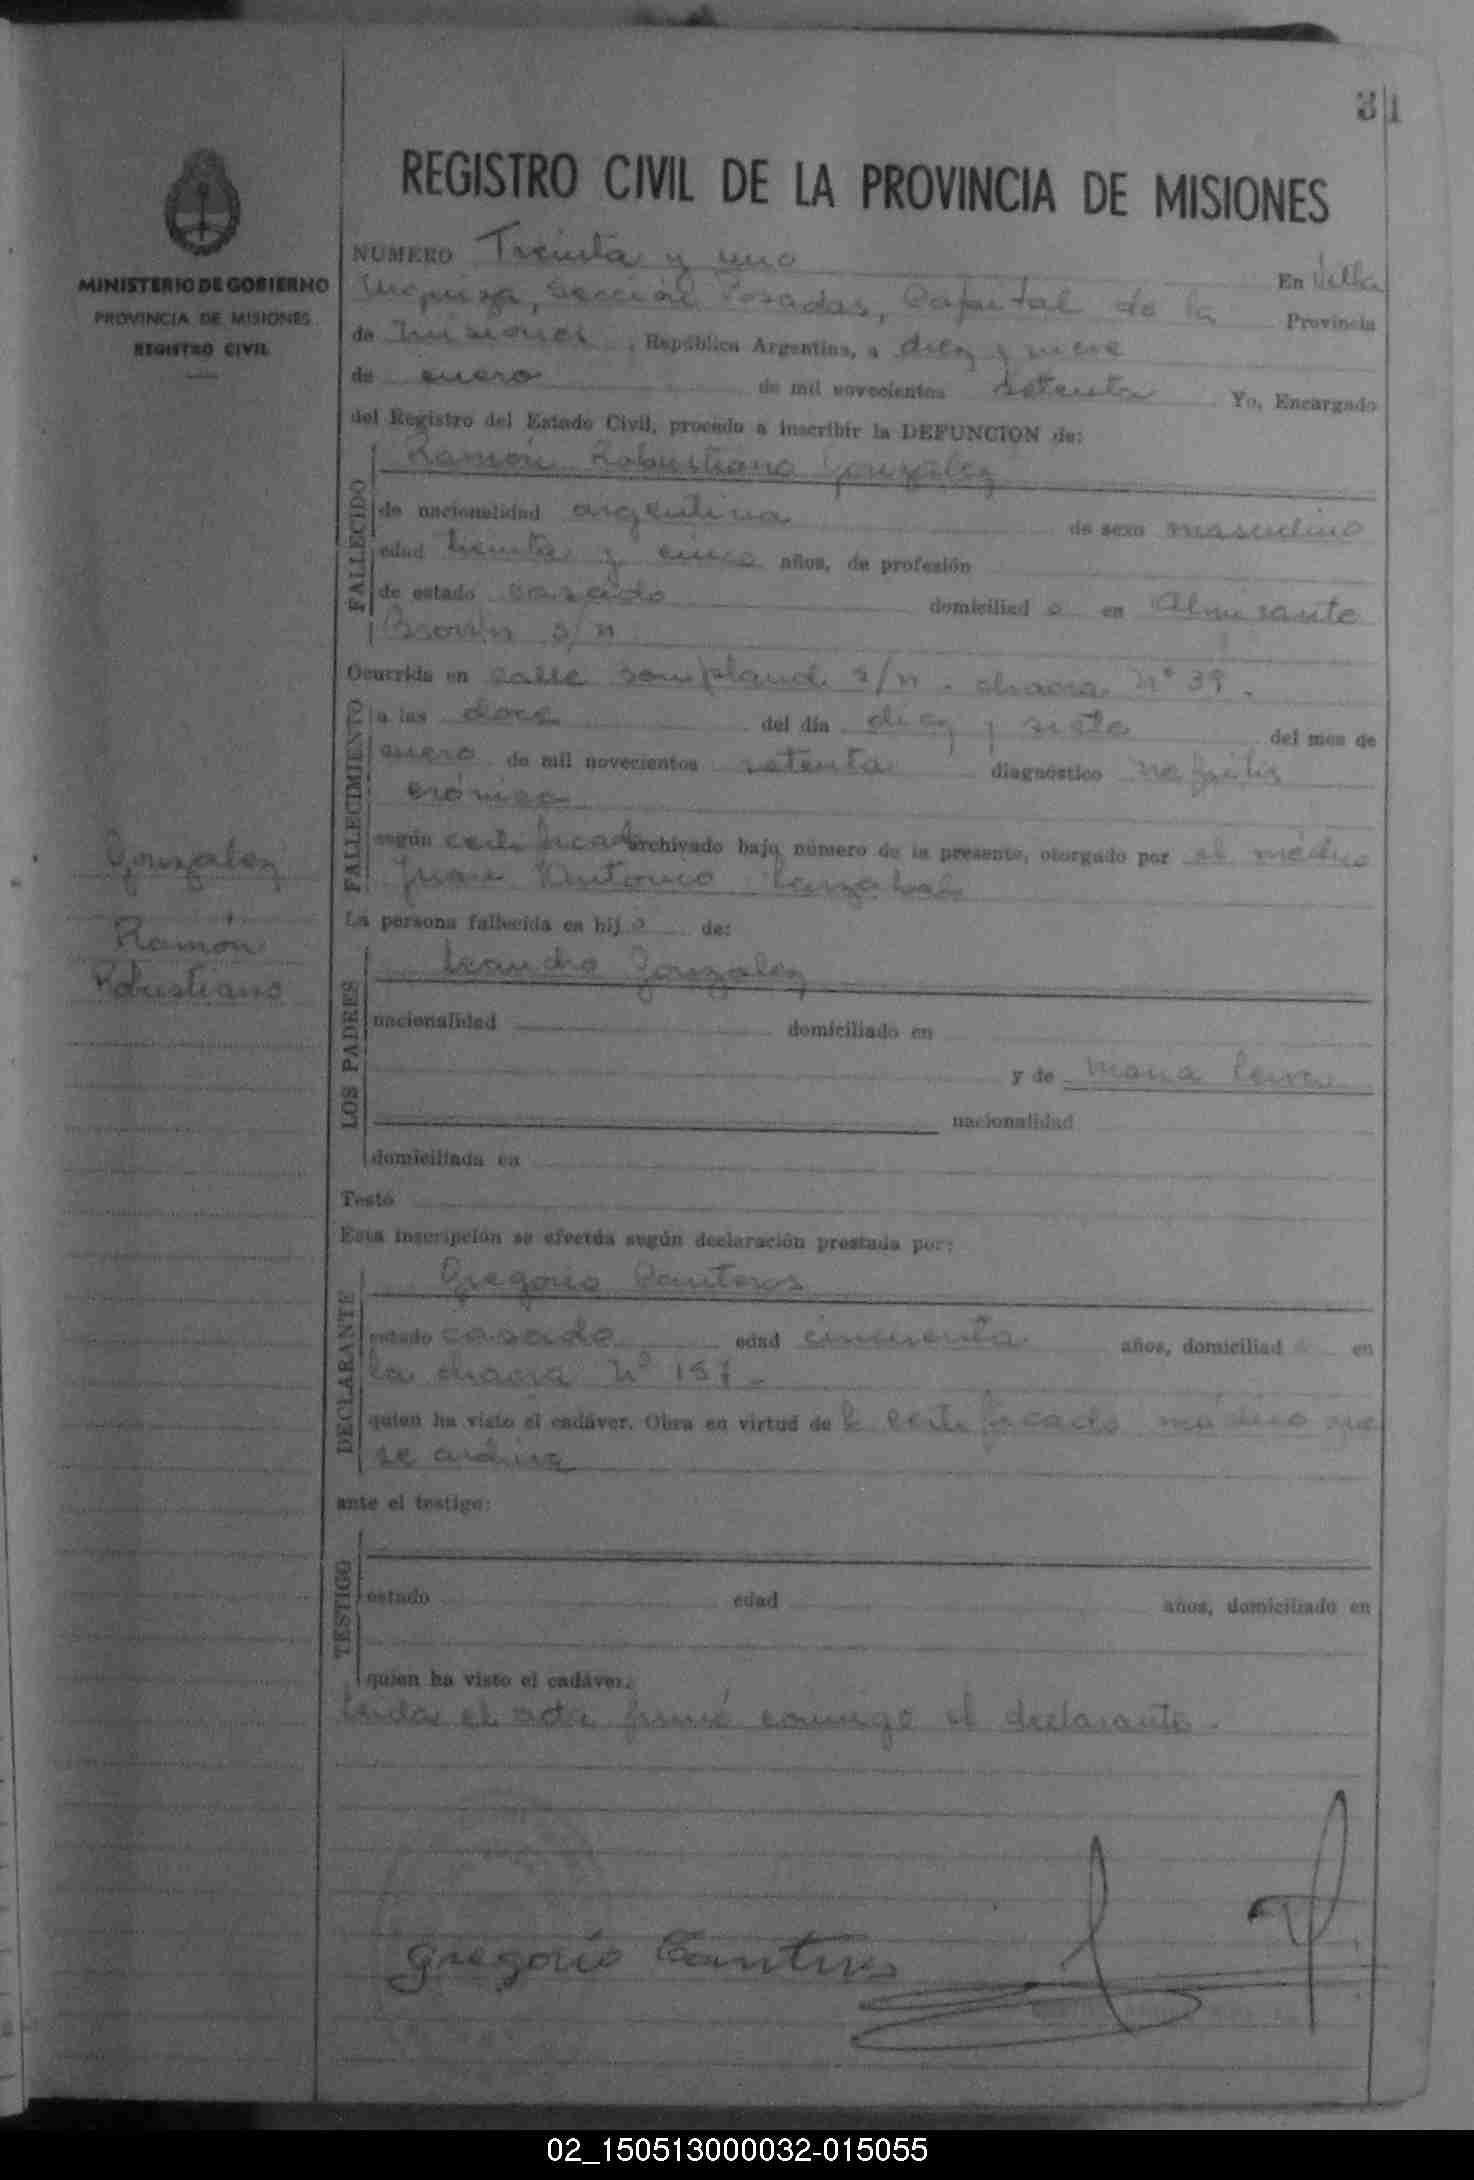 31
REGISTRO CIVIL DE LA PROVINCIA DE MISIONES
MINISTERIO DE GOBIERNO
PROVINCIA DE MISIONES
REGISTRO CIVIL
NUMERO Treinta y uno En Villa
Urquiza, Sección Posadas, Capital de la Provincia
de Misiones, República Argentina, a diez y nueve
de enero de mil novecientos setenta Yo, Encargado
del Registro del Estado Civil, procedo a inscribir la DEFUNCION de:
Ramón Robustiano González
FALLECIDO
de nacionalidad argentina de sexo masculino
edad treinta y cinco años, de profesión
de estado casado domiciliad o en Almirante
Brown s/n
Ocurrida en calle s/n. chacra Nº 39.
FALLECIMIENTO
a las doce del día diez y siete del mes de
enero de mil novecientos setenta diagnóstico nefritis
crónica
según certificado archivado bajo número de la presente, otorgado por el médico
Juan Antonio
Gonzalez
Ramón
Robustiano
La persona fallecida es hij o de:
LOS PADRES
Leandro Gonzalez
nacionalidad domiciliado en
y de Maria
nacionalidad
domiciliada en
Testó
Esta inscripción se efectúa según declaración prestada por:
DECLARANTE
Gregorio Canteros
estado casado edad cincuenta años, domiciliad en
la chacra Nº 157.
quien ha visto el cadáver. Obra en virtud de certificado médico que
se archiva
ante el testigo:
TESTIGO
estado edad años, domiciliado en
quien ha visto el cadáver.
Leida el acta firmó conmigo el declarante.
Gregorio Canteros
02_150513000032-015055